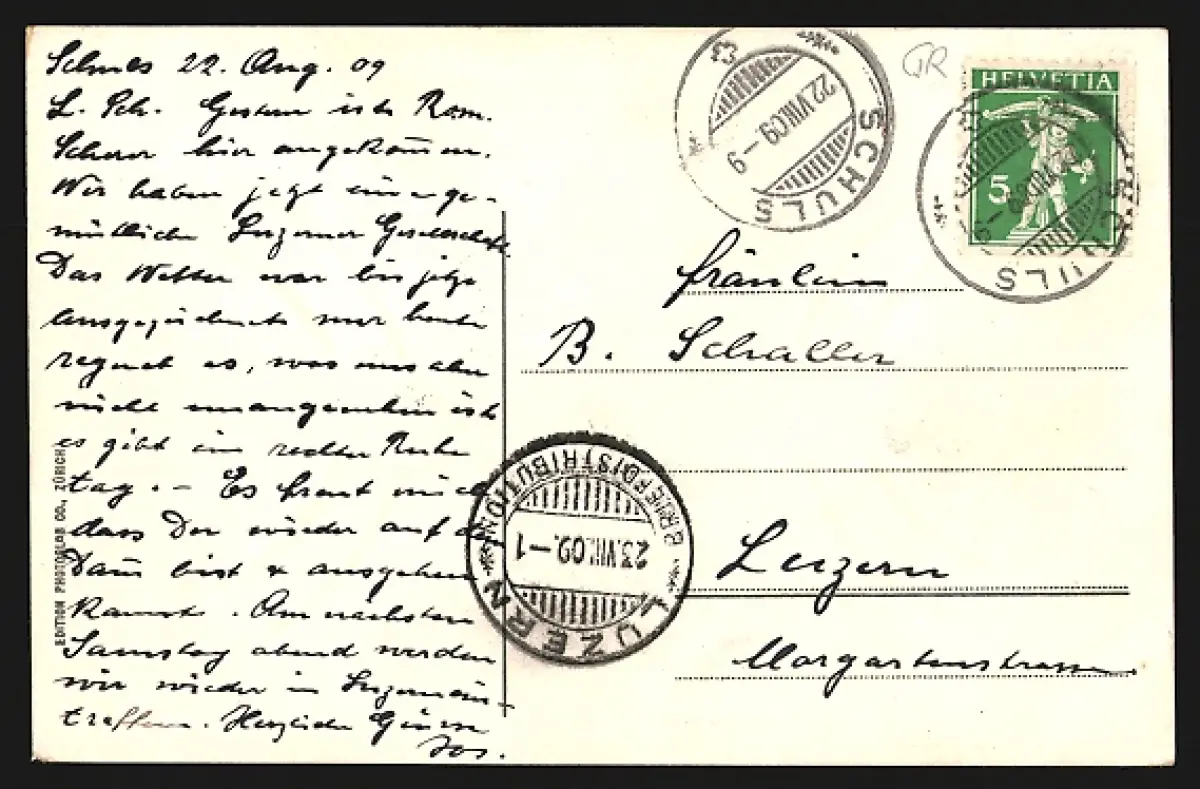 Schuls 22. Aug. 09
L. Sch. Gestern ist Rom.
Scherer hier angekommen.
Wir haben jetzt eine ge-
mütliche Luzerner Gesellschaft.
Das Wetter war bis jetzt
ausgezeichnet nur heute
regnet es, was uns aber
nicht unangenehm ist
es gibt ein rechter Ruhe
tag. – Es freut mich
dass Du wieder auf den
bist & ausgehen
kannst. Am nächsten
Samstag abend werden
wir wieder in Luzern ein-
treffen. Herzliche Grüsse
Jos.
EDITION PHOTOGLOB CO., ZÜRICH
SCHULS
22.VIII.09–9
GR
HELVETIA
5
SCHULS
22.VIII.09–9
Fräulein
B. Schaller
Luzern
Morgartenstrasse
LUZERN
BRIEFDISTRIBUTION
23.VIII.09.–1